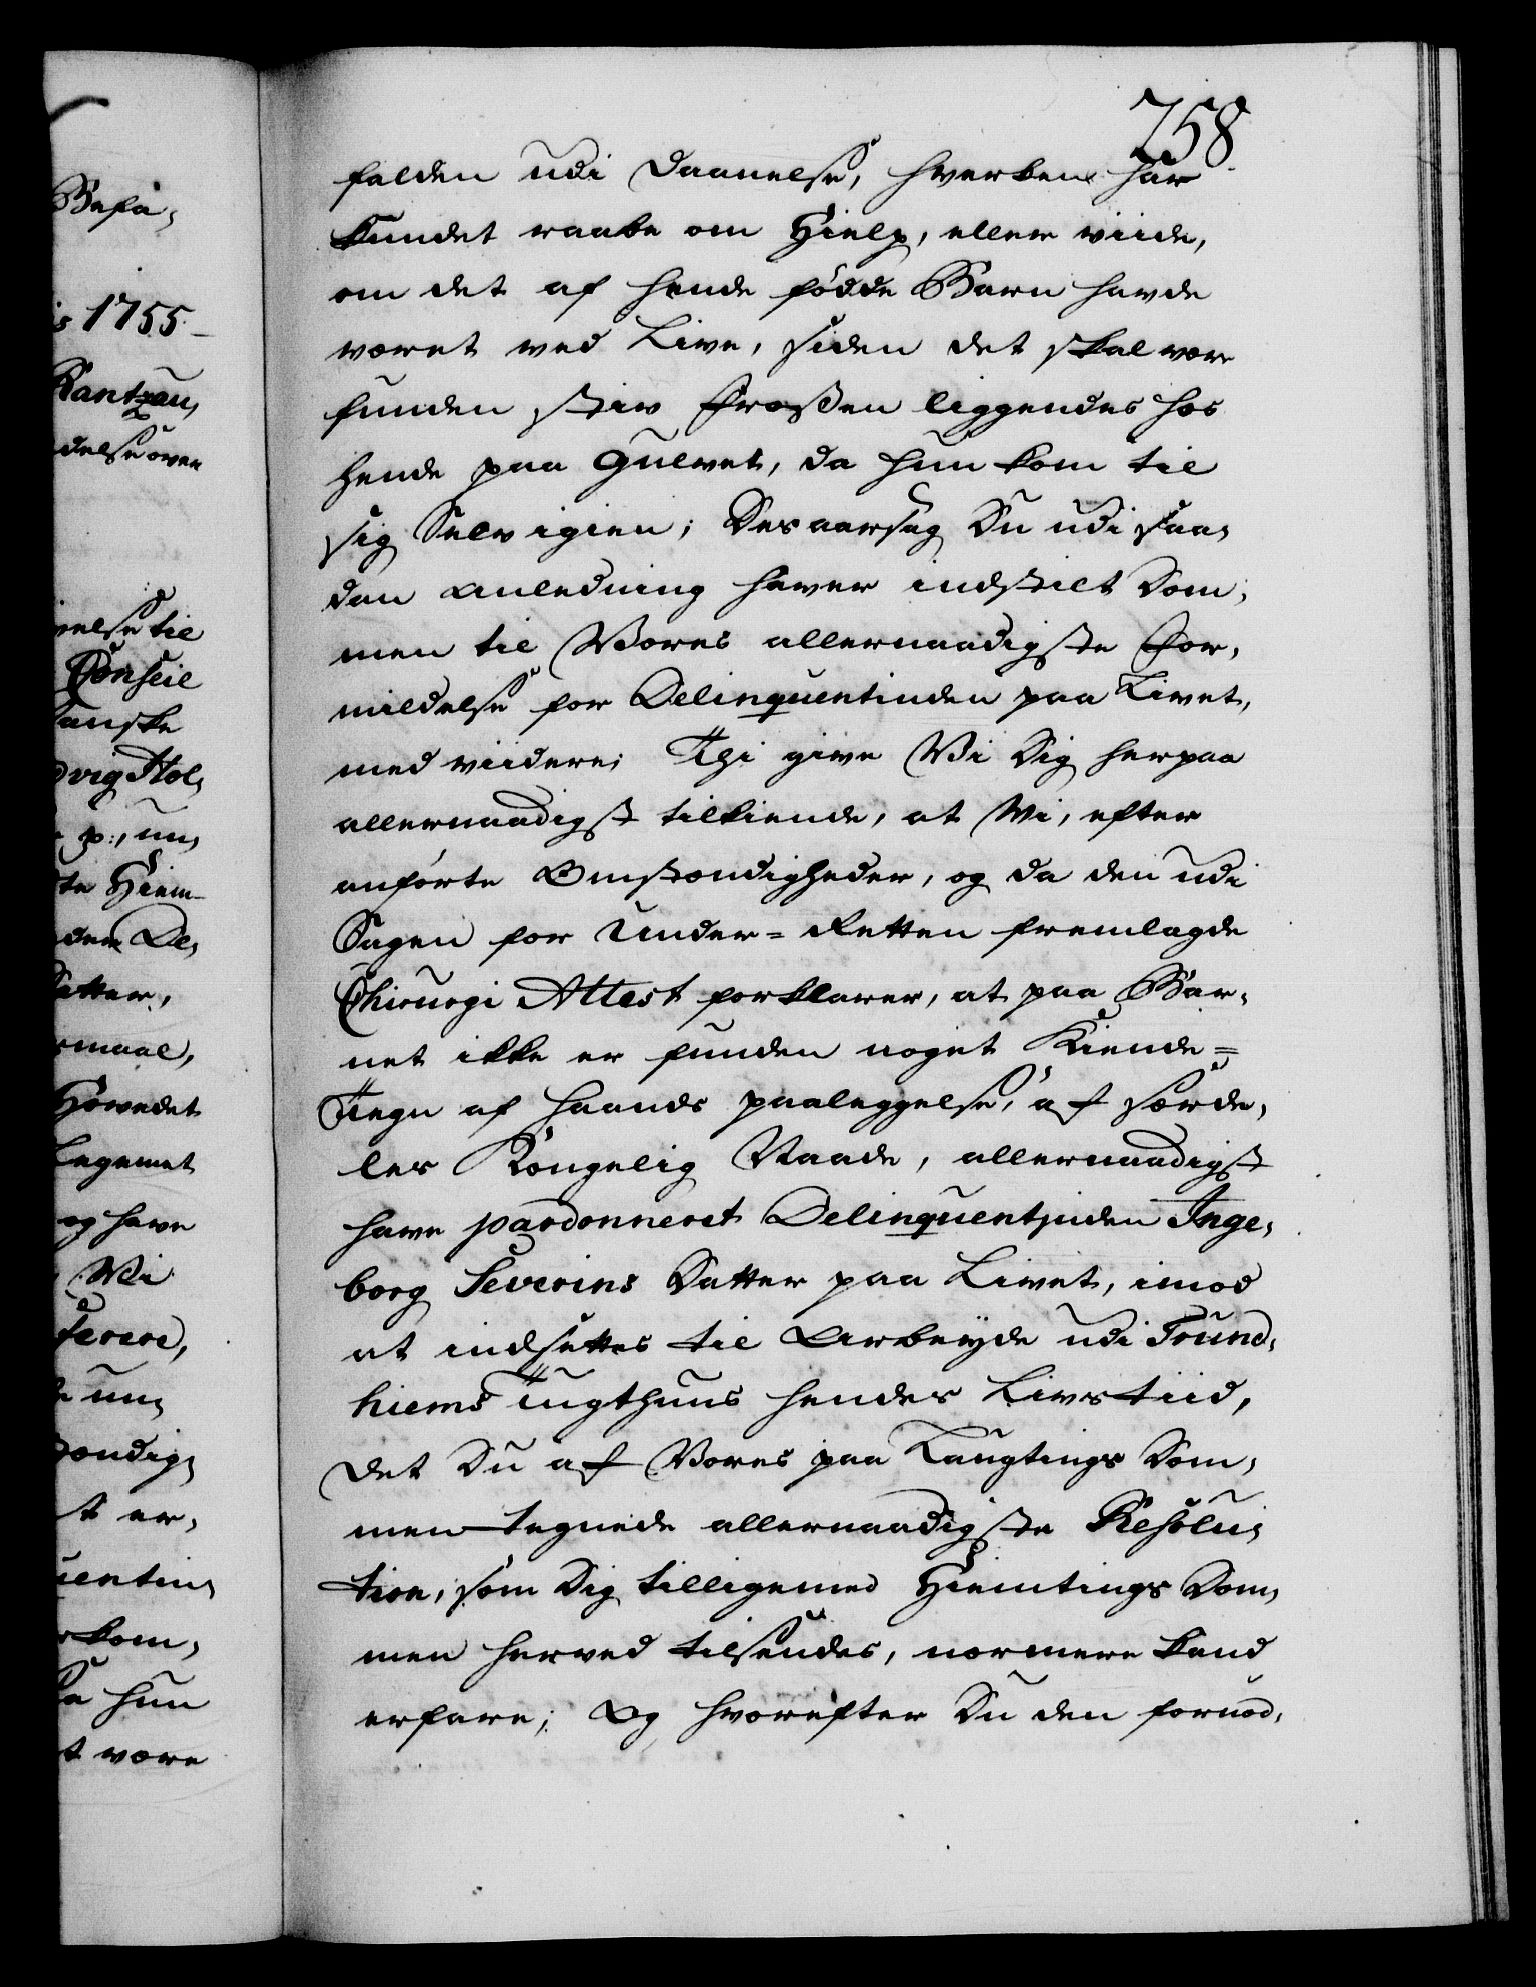 758
falden udi Daanelse, hverken har
kundet raabe om Hielp, eller viide,
om det af hende födde Barn havde
været ved Live, siden det skal være
funden stiv frossen liggendes hos
hende paa Gulvet, da hun kom til
sig Selv igien; Desaarsag Du udi saa,
dan Anledning haver indstilt Dom,
men til Vores allernaadigste For,
mildelse for Delinquentinden paa Livet,
med viidere; Thi give Vi Dig herpaa
allernaadigst tilkiende, at Vi, efter
anförte Omstændigheder, og da den udi
Sagen for Under=Retten fremlagde
Chirurgi Attest forklarer, at paa Bar,
net ikke er funden noget Kiende=
Tegn af Haands paaleggelse, af særde,
les Kongelig Naade, allernaadigst
have pardonneret Delinquentinden Inge,
borg Severins Datter paa Livet, imod
at indsettes til Arbeyde udi Trund,
hiems Tugthuus hendes Livstiid,
Det Du af Vores paa Laugtings Dom,
men tegnede allernaadigste Resolu,
tion, som Dig tilligemed Hiemtings Dom,
men herved tilsendes, nærmere kand
erfare; Og hvorefter Du den fornöd,
Befa,
1755
Rantzau,
delse over
velse til
Conseil
danske
dvig Hol,
p:, un,
te Hiem-
den De,
Datter,
smaal,
Hovedet
Legemet
og have
Vi
ferere,
un,
ændig,
t er,
uentin,
kom,
hun
t være